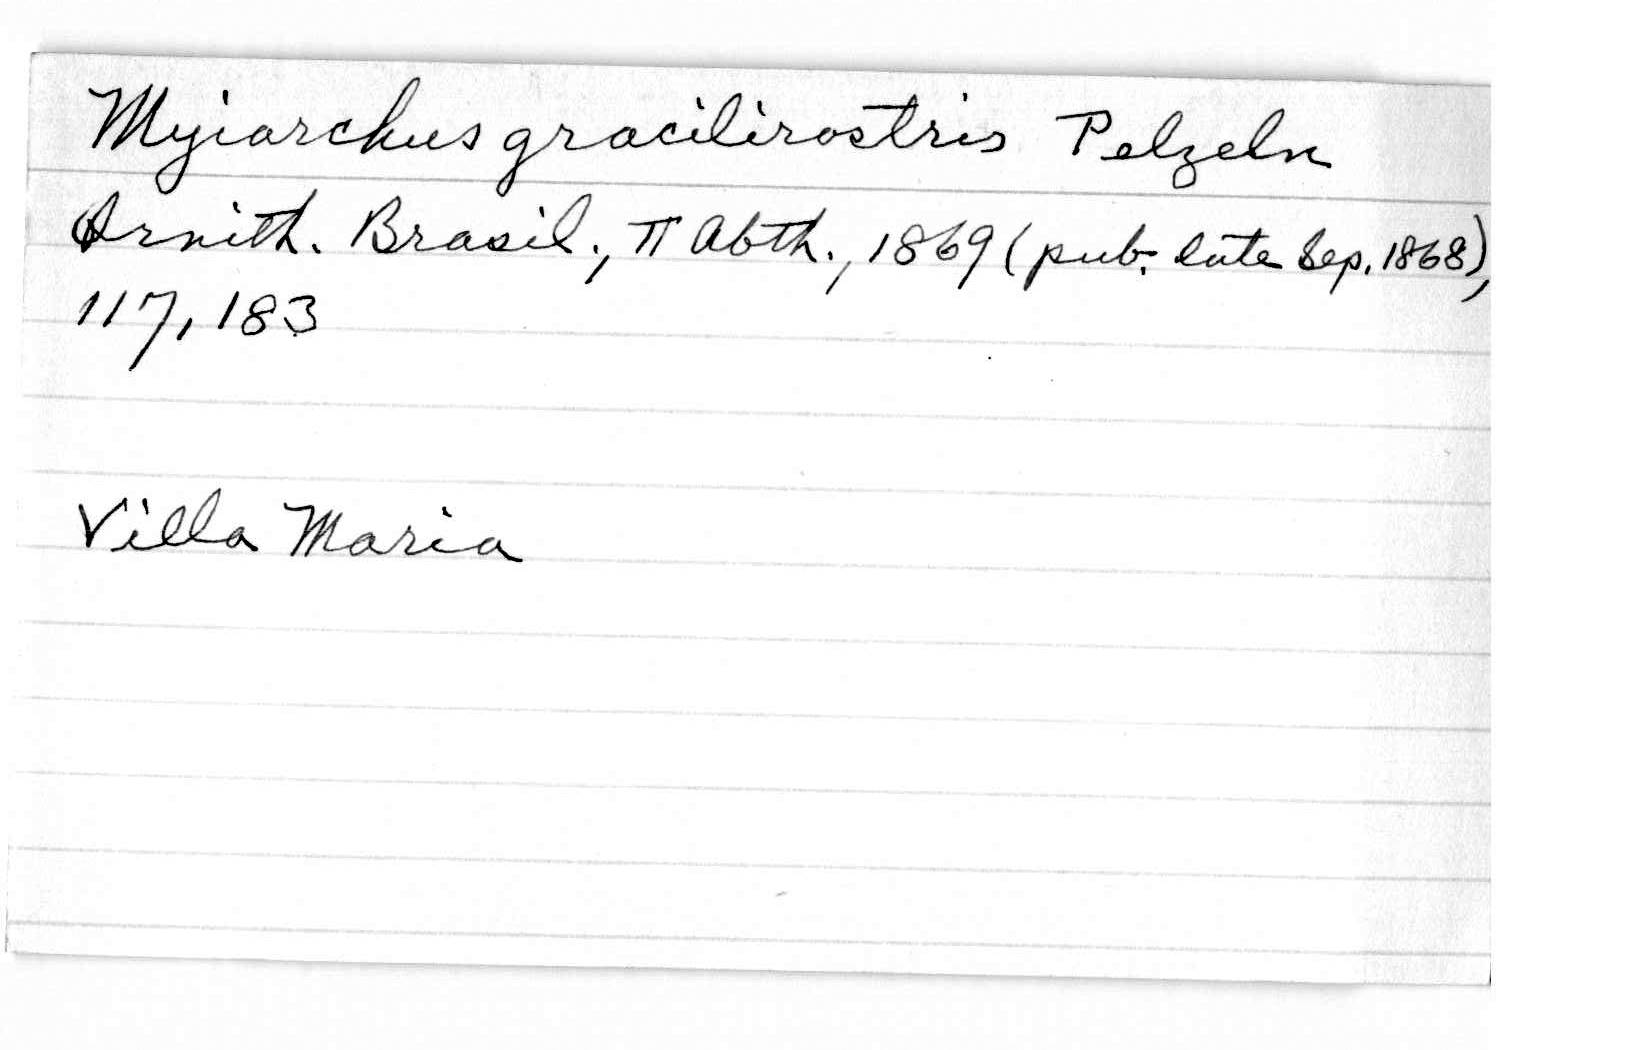 Myiarchus gracilirostris Pelzeln
Ornith. Brasil., II Abth., 1869 (pub. late Sep. 1868),
117, 183
Villa Maria